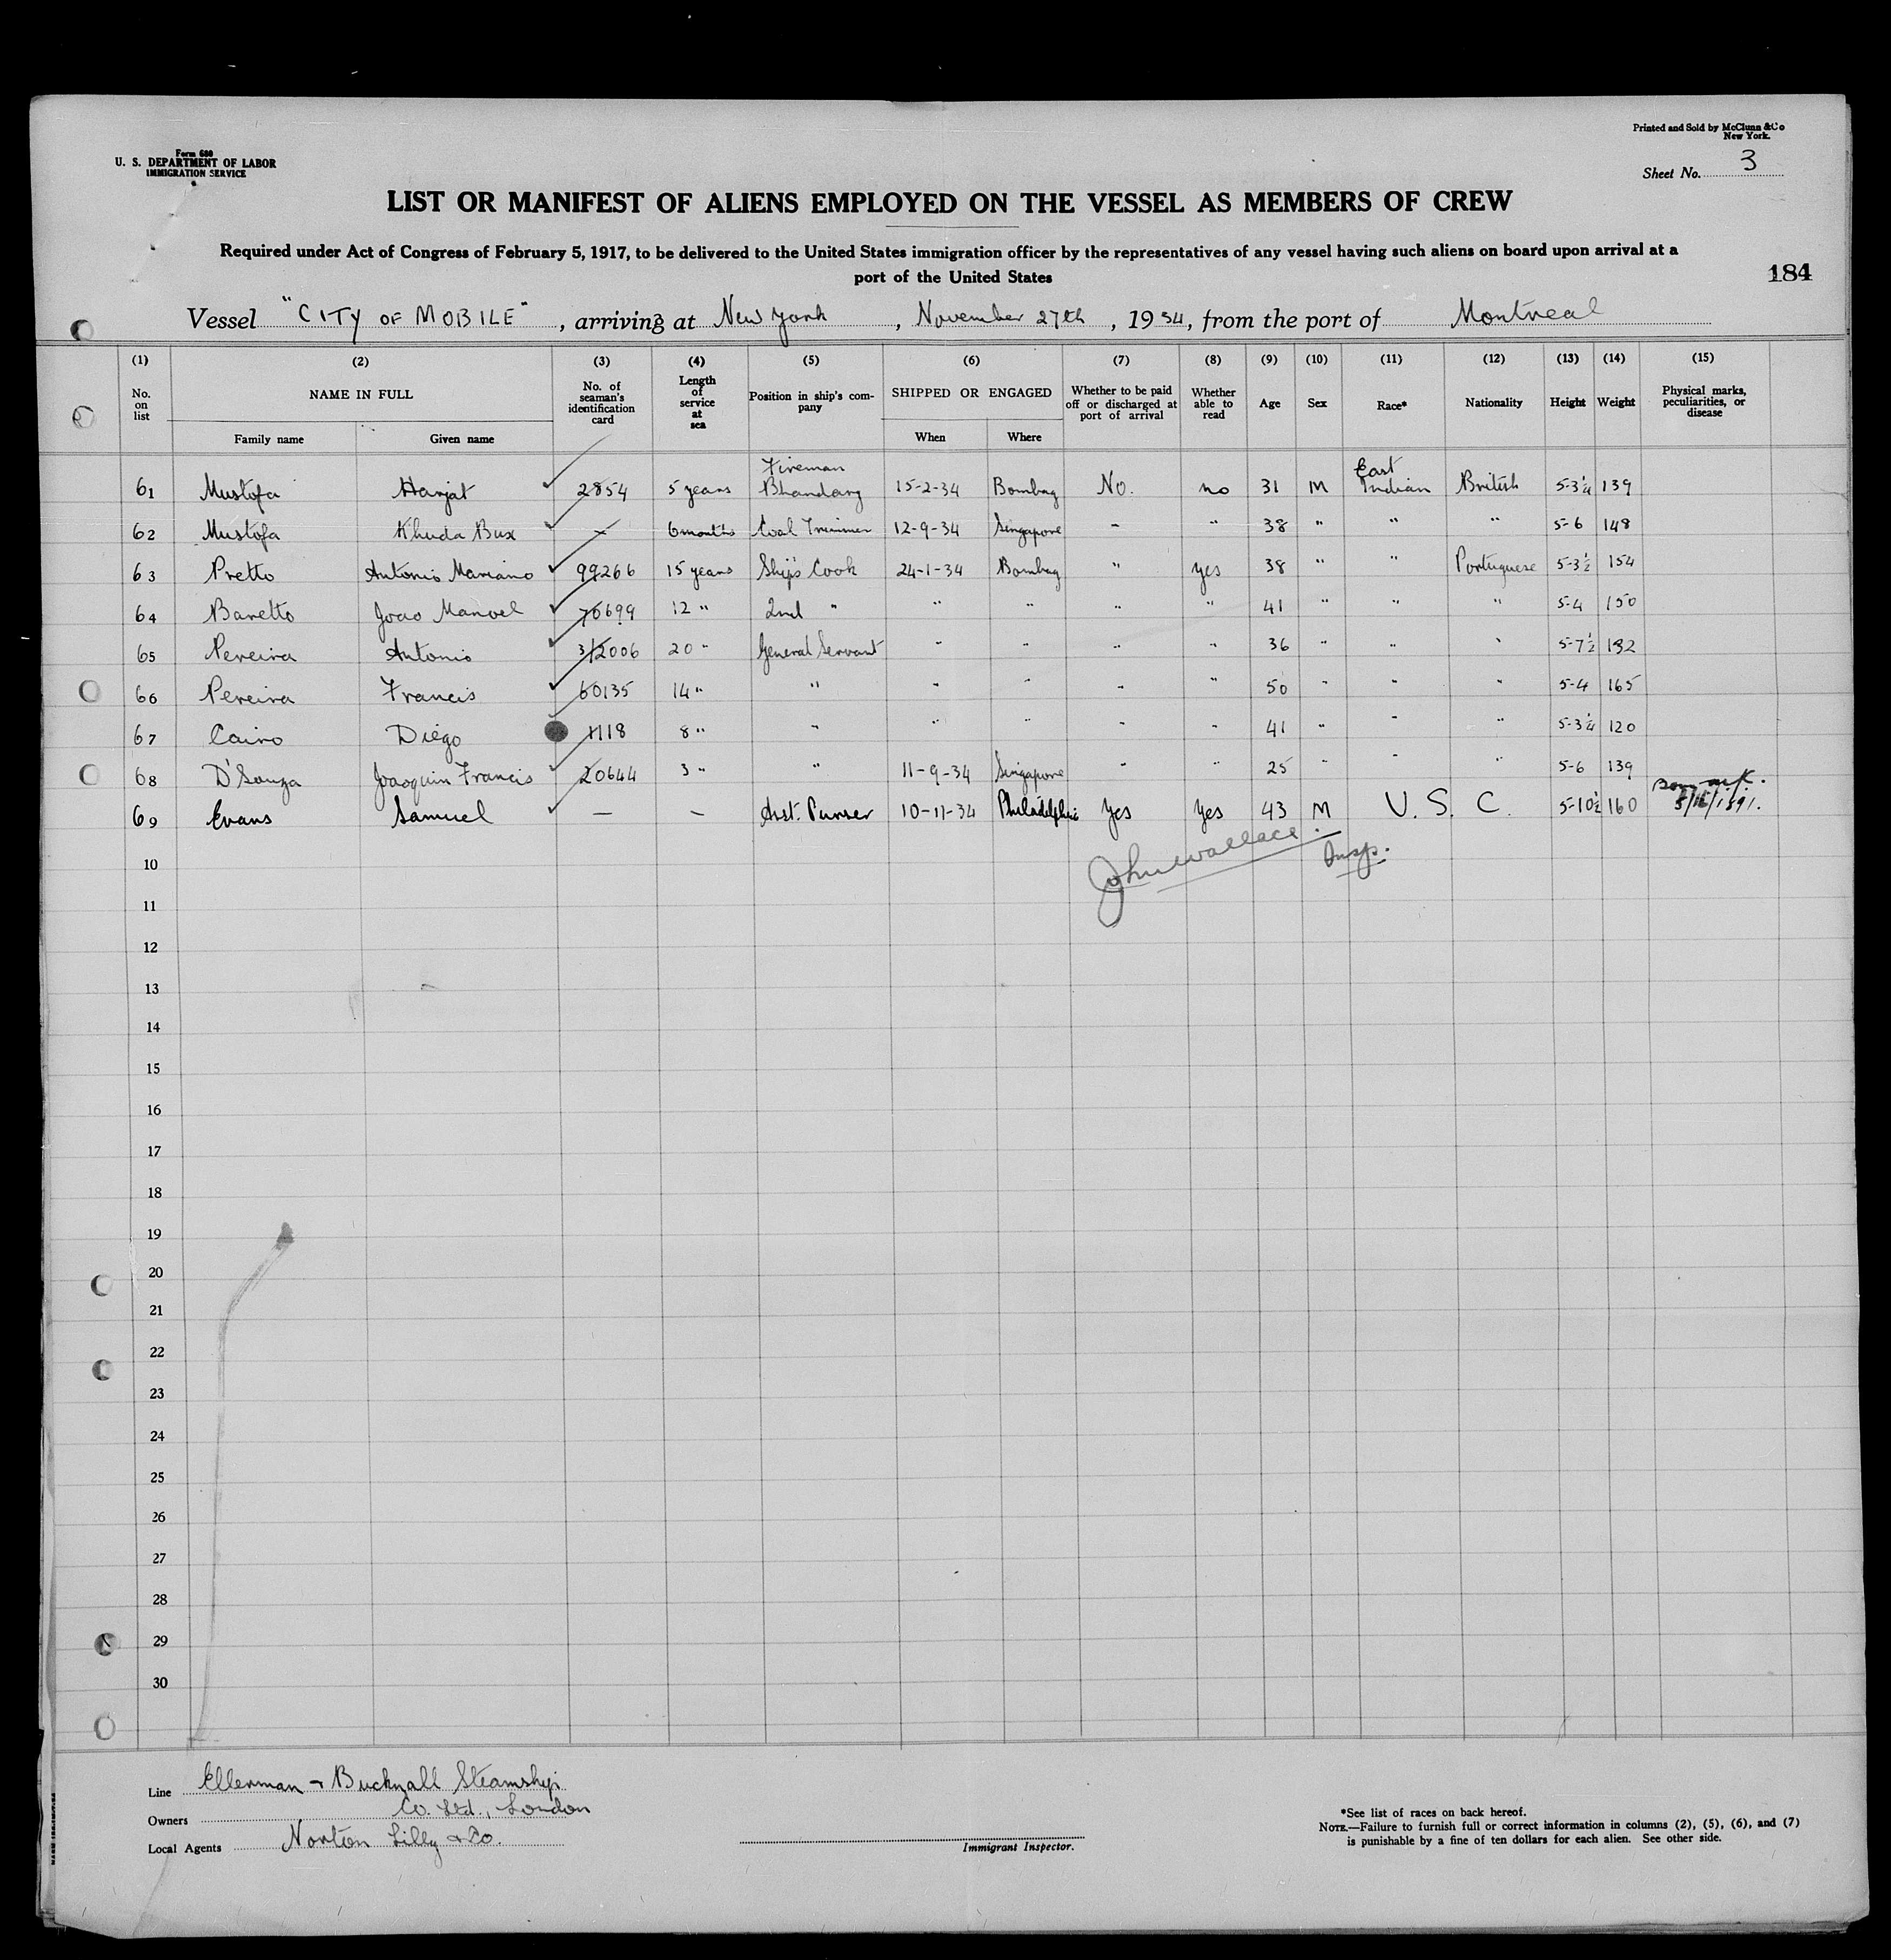 Form 680
U. S. DEPARTMENT OF LABOR
IMMIGRATION SERVICE
Printed and Sold by McClunn & Co
New York.
Sheet No. 3
LIST OR MANIFEST OF ALIENS EMPLOYED ON THE VESSEL AS MEMBERS OF CREW
Required under Act of Congress of February 5, 1917, to be delivered to the United States immigration officer by the representatives of any vessel having such aliens on board upon arrival at a
port of the United States
184
Vessel "CITY OF MOBILE", arriving at New York, November 27th, 1934, from the port of Montreal
(1) (2) (3) (4) (5) (6) (7) (8) (9) (10) (11) (12) (13) (14) (15)
No. on list NAME IN FULL No. of seaman's identification card Length of service at sea Position in ship's company SHIPPED OR ENGAGED Whether to be paid off or discharged at port of arrival Whether able to read Age Sex Race* Nationality Height Weight Physical marks, peculiarities, or disease
Family name Given name When Where
61 Mustofa 2854 5 years Fireman Bhandary 15-2-34 Bombay No. no 31 M East Indian British 5-3¼ 139
62 Mustofa Khuda Bux — 6 months Coal Trimmer 12-9-34 Singapore " " 38 " " " 5-6 148
63 Pretto Antonio Mariano 99266 15 years Ship's Cook 24-1-34 Bombay " yes 38 " " Portuguese 5-3½ 154
64 Baretto Joao Manoel 70699 12 " 2nd " " " " " 41 " " " 5-4 150
65 Pereira Antonio 3/2006 20 " General Servant " " " " 36 " " " 5-7½ 132
66 Pereira Francis 60135 14 " " " " " " 50 " " " 5-4 165
67 Cairo Diego 1118 8 " " " " " " 41 " " " 5-3¼ 120
68 D'Souza Joaoquin Francis 20644 3 " " 11-9-34 Singapore " " 25 " " " 5-6 139
69 Evans Samuel — — Asst. Purser 10-11-34 Philadelphia Yes Yes 43 M U. S. C. 5-10½ 160
John Wallace. Insp.
10
11
12
13
14
15
16
17
18
19
20
21
22
23
24
25
26
27
28
29
30
Line Ellerman & Bucknall Steamship
Owners Co. Ltd., London
Local Agents Norton Lilly & Co.
Immigrant Inspector.
*See list of races on back hereof.
NOTE.—Failure to furnish full or correct information in columns (2), (5), (6), and (7)
is punishable by a fine of ten dollars for each alien. See other side.